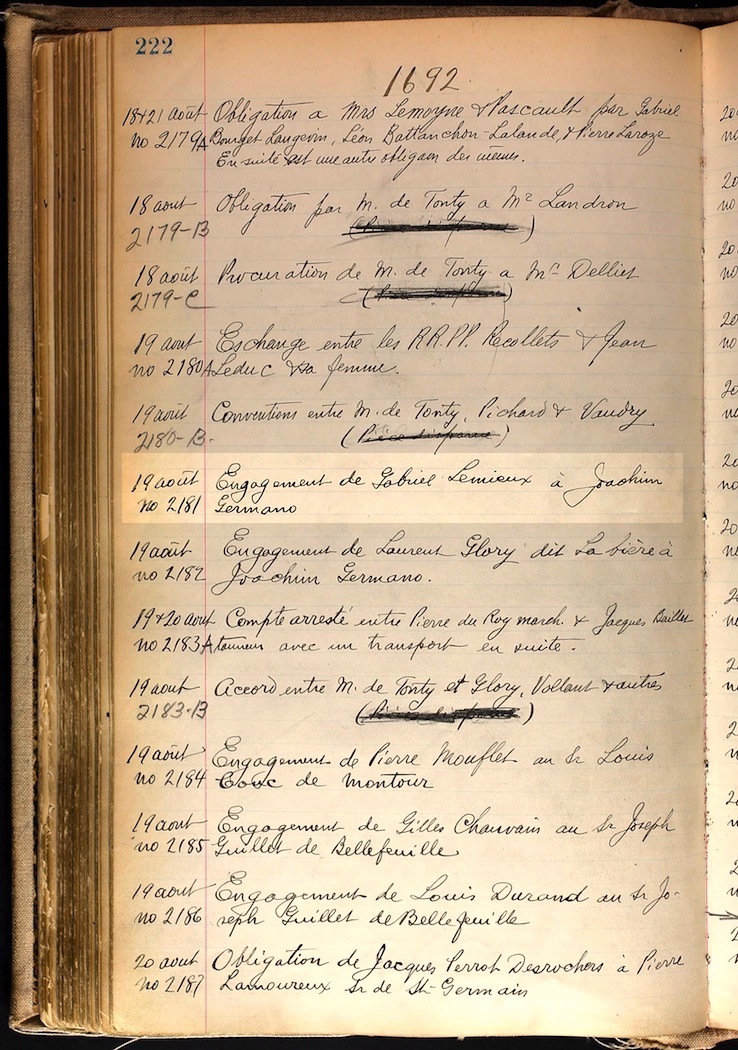 222
1692.
18&21 août Obligation a Mrs Lemoyne & Pascault par Gabriel
no 2179A Bourget Langevin, Léon Batlanchon-Lalande, & Pierre Laroze
En suite est une autre obligaon des mêmes.
18 aout Obligation par M. de Tonty a Mr Landron
2179-B
18 août Procuration de M. de Tonty a Mr Delliet
2179-C
19 aout Eschange entre les R.R.P.P. Recollets & Jean
no 2180A Leduc & sa femme.
19 août Conventions entre M. de Tonty, Pichard & Vaudry
2180-B- (Pièce disparue)
19 août Engagement de Gabriel Lemieux à Joachim
no 2181 Germano
19 août Engagement de Laurent Glory dit La bière à
no 2182 Joachim Germano.
19&20 aout Compte arresté entre Pierre du Roy march. & Jacques Baillet
no 2183A tanneur avec un transport en suite.
19 aout Accord entre M. de Tonty et Glory, Vollant & autres
2183-B
19 août Engagement de Pierre Mouflet au Sr Louis
no 2184 Couc de Montour
19 aout Engagement de Gilles Chauvain au Sr Joseph
no 2185 Guillet de Bellefeuille
19 aout Engagement de Louis Durand au Sr Jo-
no 2186 seph Guillet de Bellefeuille
20 aout Obligation de Jacques Perrot Desrochers à Pierre
no 2187 Lamoureux Sr de St-Germain